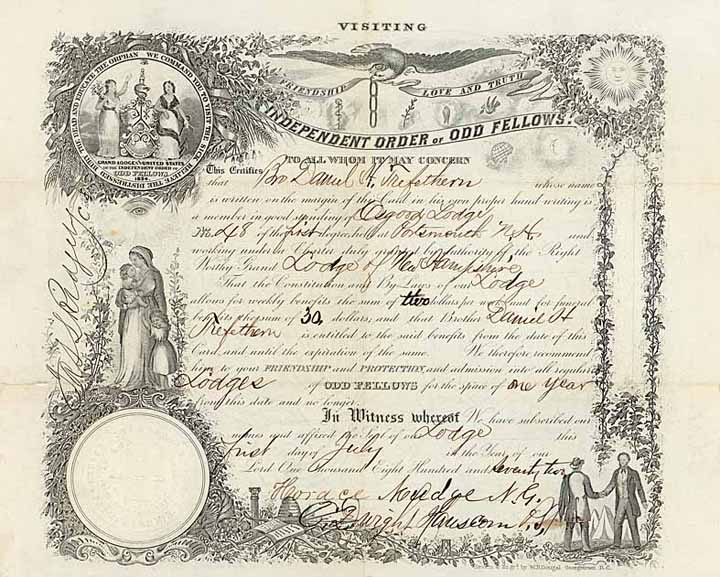 VISITING
FRIENDSHIP LOVE AND TRUTH
INDEPENDENT ORDER OF ODD FELLOWS.
WE COMMAND YOU TO VISIT THE SICK, RELIEVE THE DISTRESSED, BURY THE DEAD AND EDUCATE THE ORPHAN
GRAND LODGE UNITED STATES
OF THE INDEPENDENT ORDER OF
ODD FELLOWS
TO ALL WHOM IT MAY CONCERN
This Certifies
that Bro Daniel H. Trefethern whose name
is written on the margin of this Card in his own proper hand writing is
a member in good standing of Osgood Lodge
No. 48 of the first degree held at Portsmouth N.H. and
working under a Charter duly granted by authority of the Right
Worthy Grand Lodge of New Hampshire
That the Constitution and By Laws of our Lodge
allows for weekly benefits the sum of two dollars per week and for funeral
benefits the sum of 30 dollars, and that Brother Daniel H
Trefethern is entitled to the said benefits from the date of this
Card, and until the expiration of the same. We therefore recommend
him to your FRIENDSHIP and PROTECTION, and admission into all regular
Lodges of ODD FELLOWS for the space of one year
from this date and no longer.
In Witness whereof We have subscribed our
names and affixed the Seal of our Lodge this
first day of July in the Year of our
Lord One Thousand Eight Hundred and seventy two
Horace Mudge N.G.
Dwight Hanscom
Georgetown D.C.